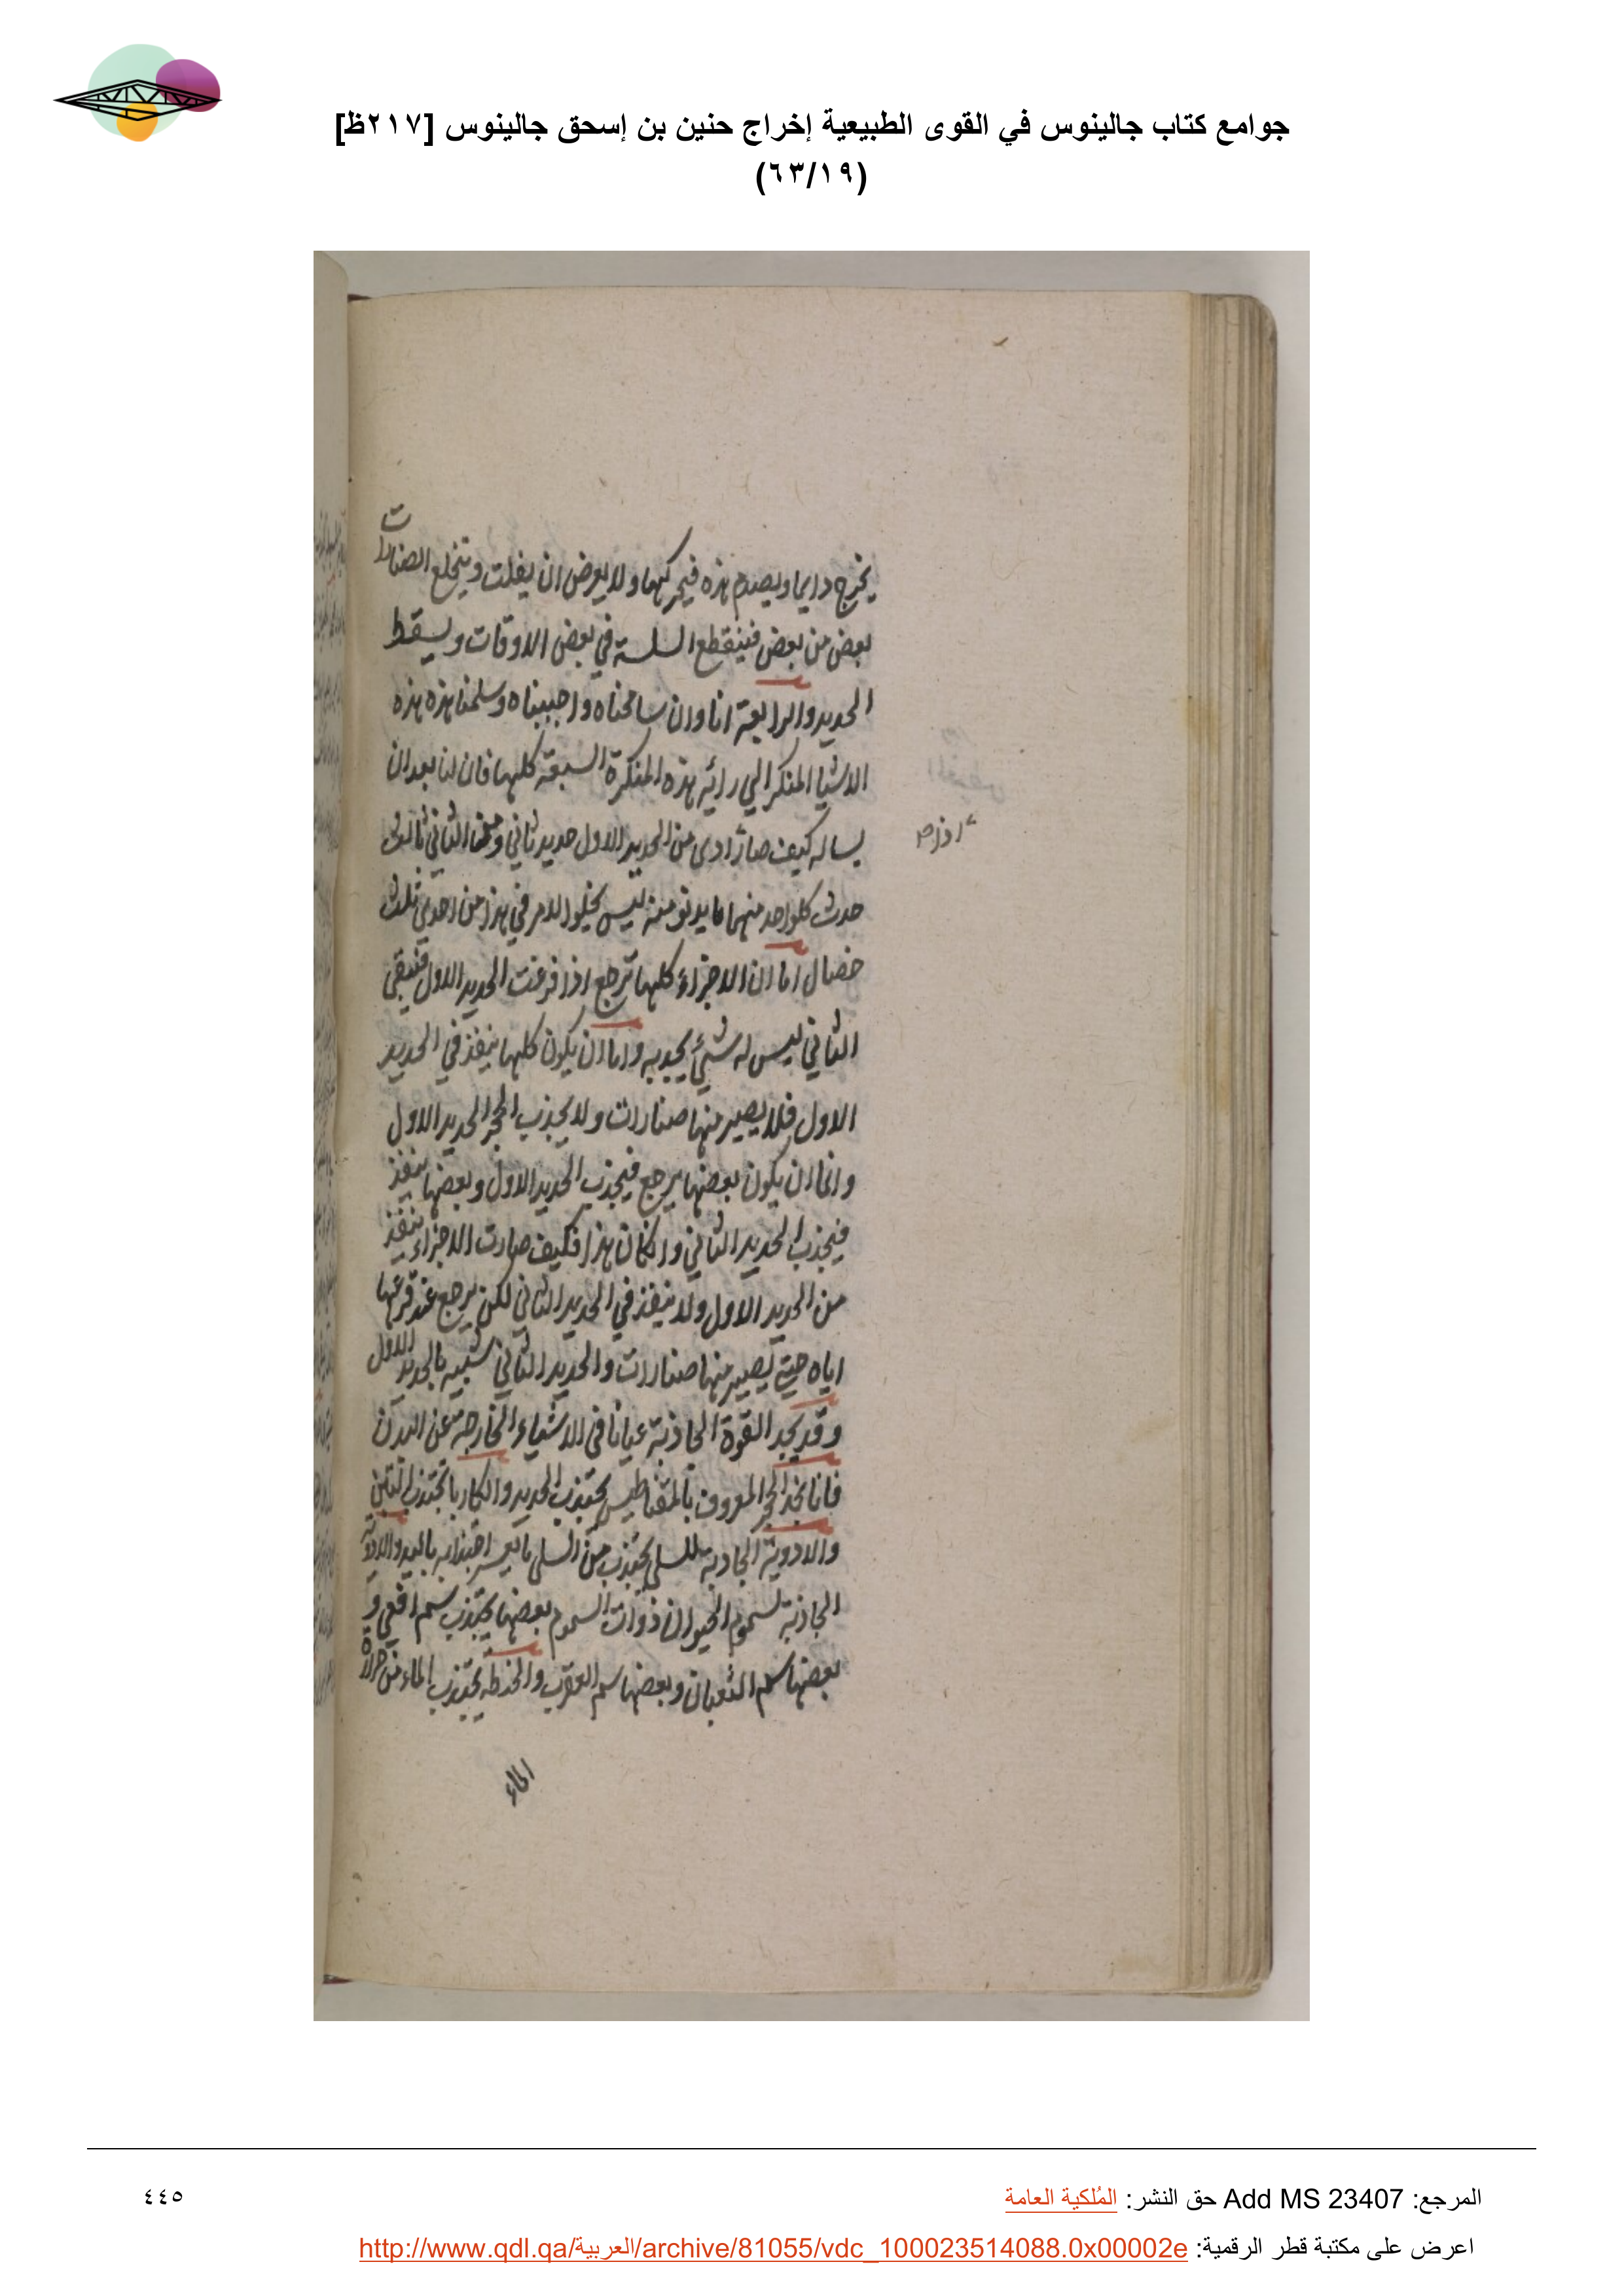 جوامع كتاب جالينوس في القوى الطبيعية إخراج حنين بن إسحق جالينوس [٢١٧ظ]
(٦٣/١٩)
يخرج دايما ويصدم هذه فيحركها ولا يعرض ان يفلت ويتخلع الصنارات
بعض من بعض فينقطع السلسة في بعض الاوقات ويسقط
الحديد والرابعة انا وان سامحناه واجبناه وسلمنا هذه هذه
الاشيا المنكرا الي رائه هذه المنكرة السبعة كلها فان لنا بعد ان
يساله كيف صار ادى من الحديد الاول حديد ثاني ومن الثاني ثالث
حدث كلواحد منهما ما يدنو منه ليس يخلوا الامر في هذا من احدى ثلث
خصال اما ان الاجزاء كلها ترجع اذا قرعت الحديد الاول فيبقى
الثاني ليس له شئ يجدبه واما ان يكون كلها ينفذ في الحديد
الاول فلا يصير منها صنارات ولا يجذب الحجر الحديد الاول
واما ان يكون بعضها يرجع فيجذب الحديد الاول وبعضها ينفذ
فيجذب الحديد الثاني وان كان هذا فكيف صارت الاجزاء ينفذ
من الحديد الاول ولا ينفذ في الحديد الثاني لكن يرجع عند قرعها
اياه حتي يصير منها صنارات والحديد الثاني شبيه بالحديد الاول
وقد يجد القوة الجاذبة عيانا في الاشياء الخارجة عن البدن
فانا نجد الحجر المعروف بالمقناطيس يجتذب الحديد والكاربا تجتذب التبن
والادوية الجادبة للسلي يجتذب من السلي ما يعسر اجتذابه باليد والادوية
الجاذبة لسموم الحيوان ذوات السموم بعضها يجتذب سم افعي و
بعضها سم الثعبان وبعضها سم العقرب والحنطة يجتذب الماء من جرار
الماء
المرجع: Add MS 23407 حق النشر: المُلكية العامة
٤٤٥
اعرض على مكتبة قطر الرقمية: http://www.qdl.qa/العربية/archive/81055/vdc_100023514088.0x00002e